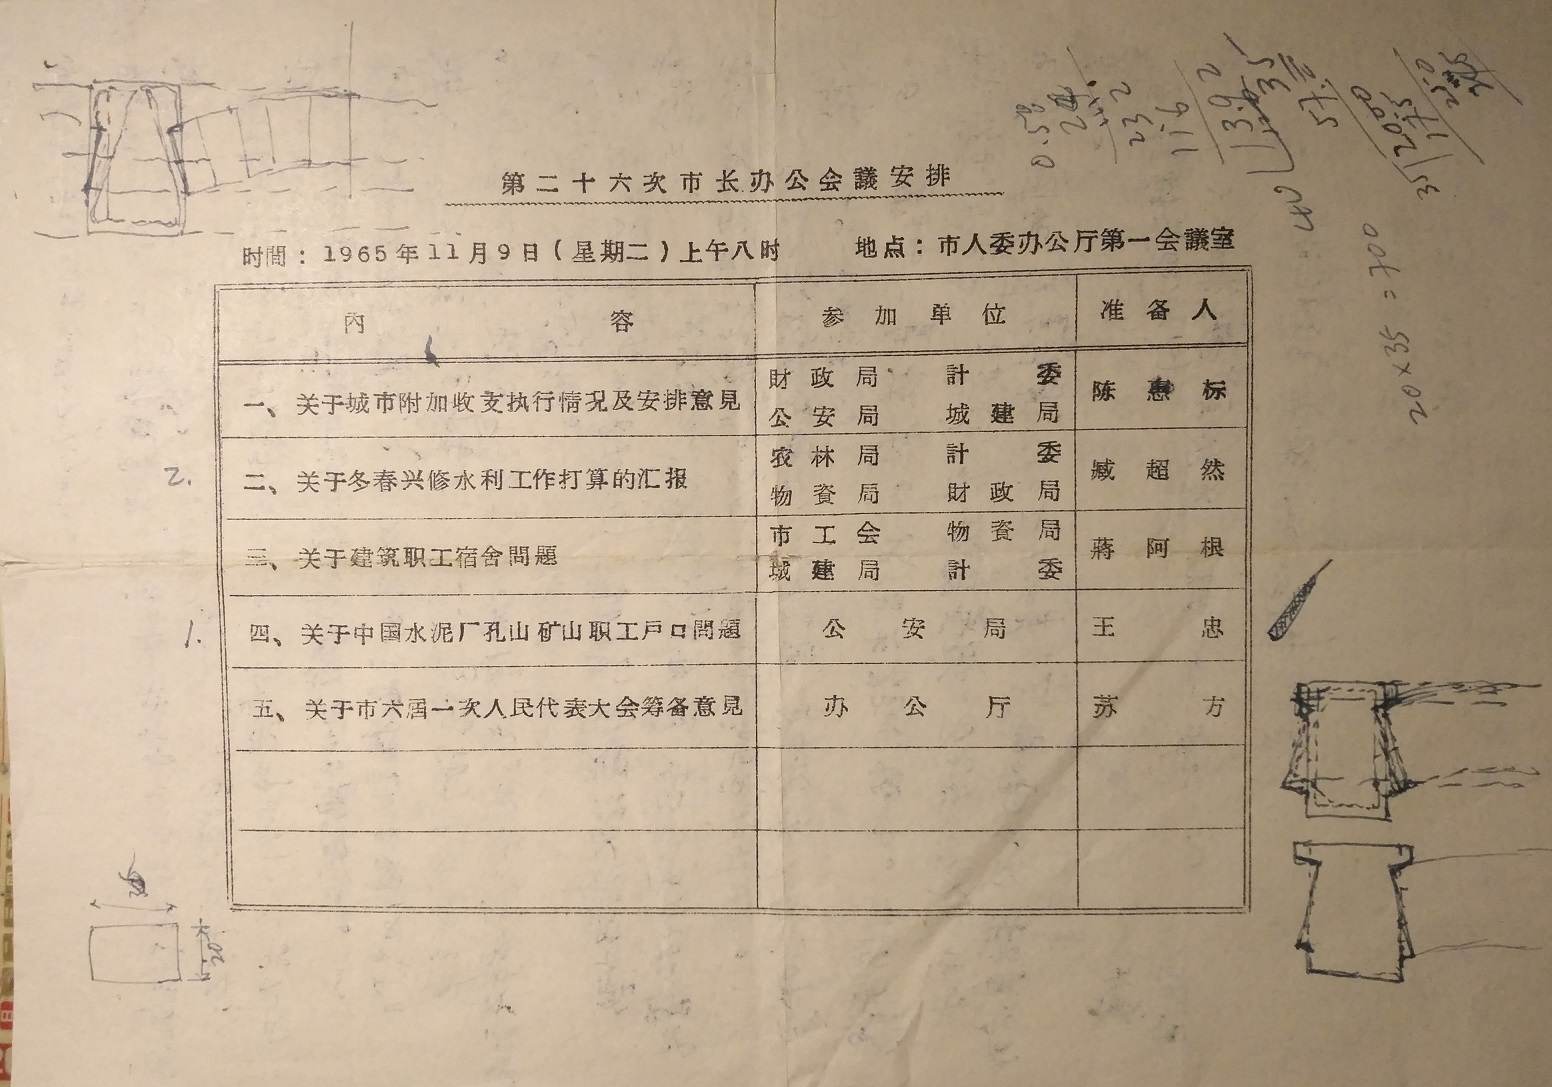 第二十六次市长办公会議安排
时間：1965年11月9日(星期二)上午八时 地点：市人委办公厅第一会議室
內容 参加单位 准备人
一、关于城市附加收支执行情况及安排意見 財政局 計委 陈惠标
公安局 城建局
2. 二、关于冬春兴修水利工作打算的汇报 农林局 計委 臧超然
物資局 財政局
三、关于建筑职工宿舍問題 市工会 物資局 蔣阿根
城建局 計委
1. 四、关于中国水泥厂孔山矿山职工戶口問題 公安局 王忠
五、关于市六届一次人民代表大会筹备意見 办公厅 苏方
0.58
24
232
116
1392
20×35=700